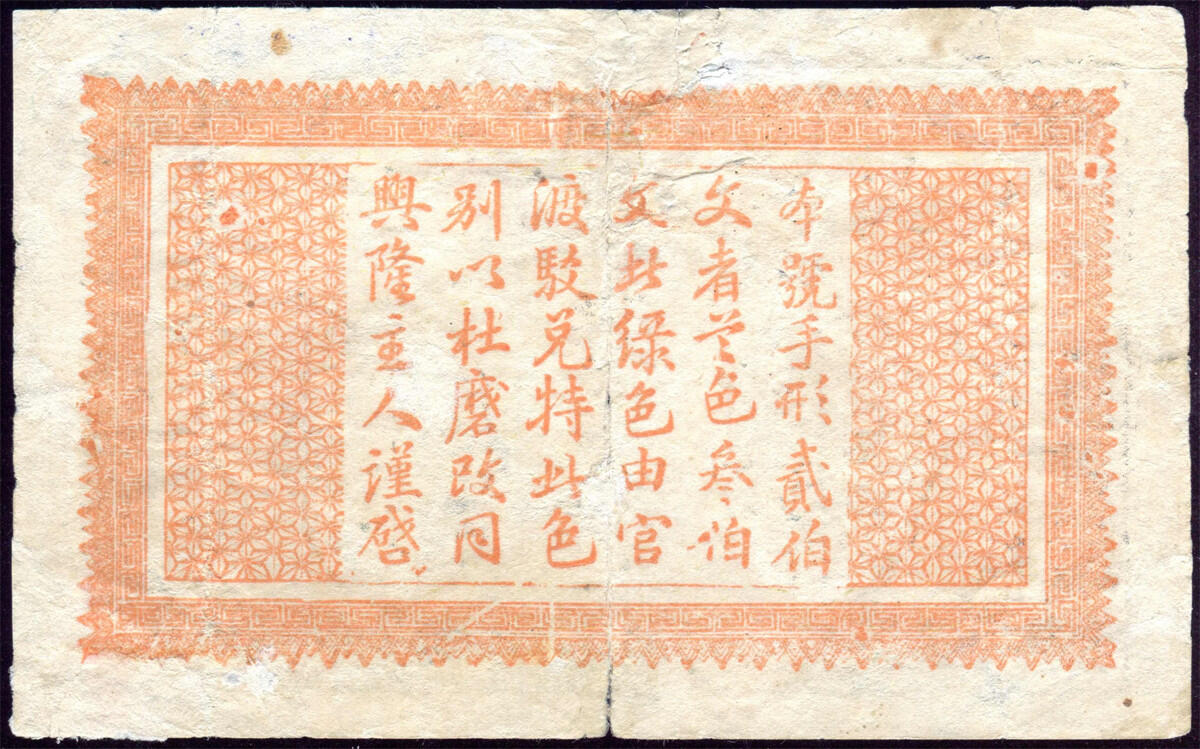 本號手形貳伯
文者兰色叁伯
文此綠色由官
渡駁兑特此色
別以杜磨改同
興隆主人謹啓